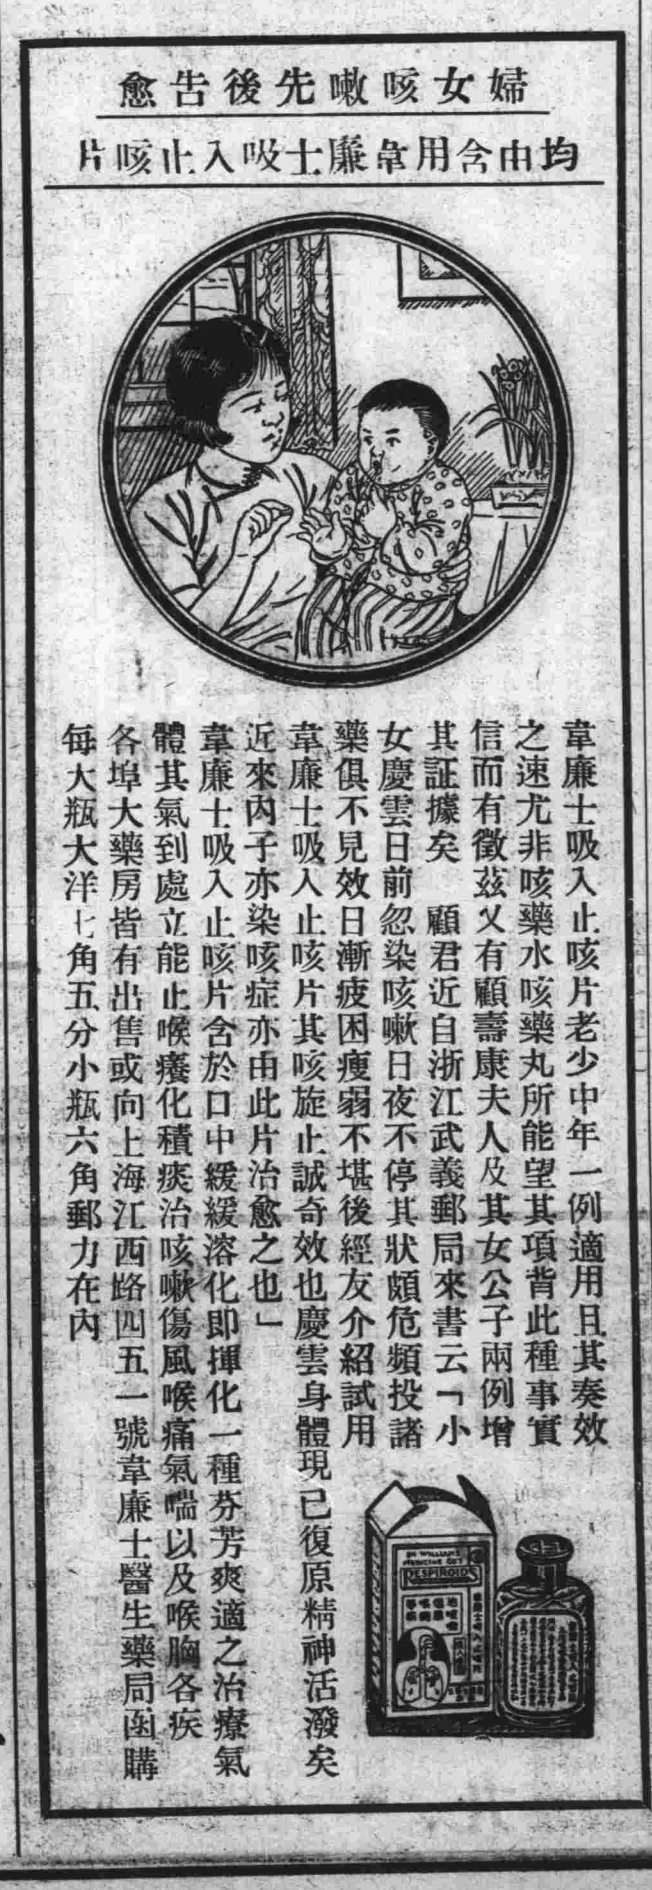 婦女咳嗽先後告愈
均由含用韋廉士吸入止咳片
韋廉士吸入止咳片老少中年一例適用且其奏效
之速尤非咳藥水咳藥丸所能望其項背此種事實
信而有徵茲又有顧壽康夫人及其女公子兩例增
其証據矣　顧君近自浙江武義郵局來書云「小
女慶雲日前忽染咳嗽日夜不停其狀頗危頻投諸
藥俱不見效日漸疲困瘦弱不堪後經友介紹試用
韋廉士吸入止咳片其咳旋止誠奇效也慶雲身體現已復原精神活潑矣
近來內子亦染咳症亦由此片治愈之也」
韋廉士吸入止咳片含於口中緩緩溶化即揮化一種芬芳爽適之治療氣
體其氣到處立能止喉癢化積痰治咳嗽傷風喉痛氣喘以及喉胸各疾
各埠大藥房皆有出售或向上海江西路四五一號韋廉士醫生藥局函購
每大瓶大洋七角五分小瓶六角郵力在內
DR WILLIAMS
MEDICINE COY
RESPIROIDS